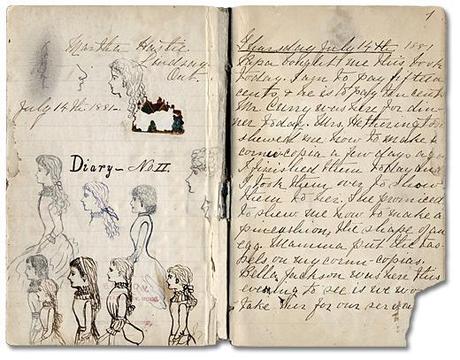 Martha Hastie
Lindsay
Ont.
July 14th 1881-
Diary - No II.
1
Thursday July 14th, 1881
Papa bought me this book
today. I am to pay fifteen
cents, & he is to pay ten cents
Mr Curry was here for din-
ner today. Mrs. Hetherington
showed me how to make a
cornucopia a few days ago
I finished them today and
I took them over to show
them to her. She promised
to show me how to make a
pincushion, the shape of an
egg. Mamma put the tas-
sels on my cornu-copias.
Bella Jackson was here this
evening to see if we wo
take her for our servan